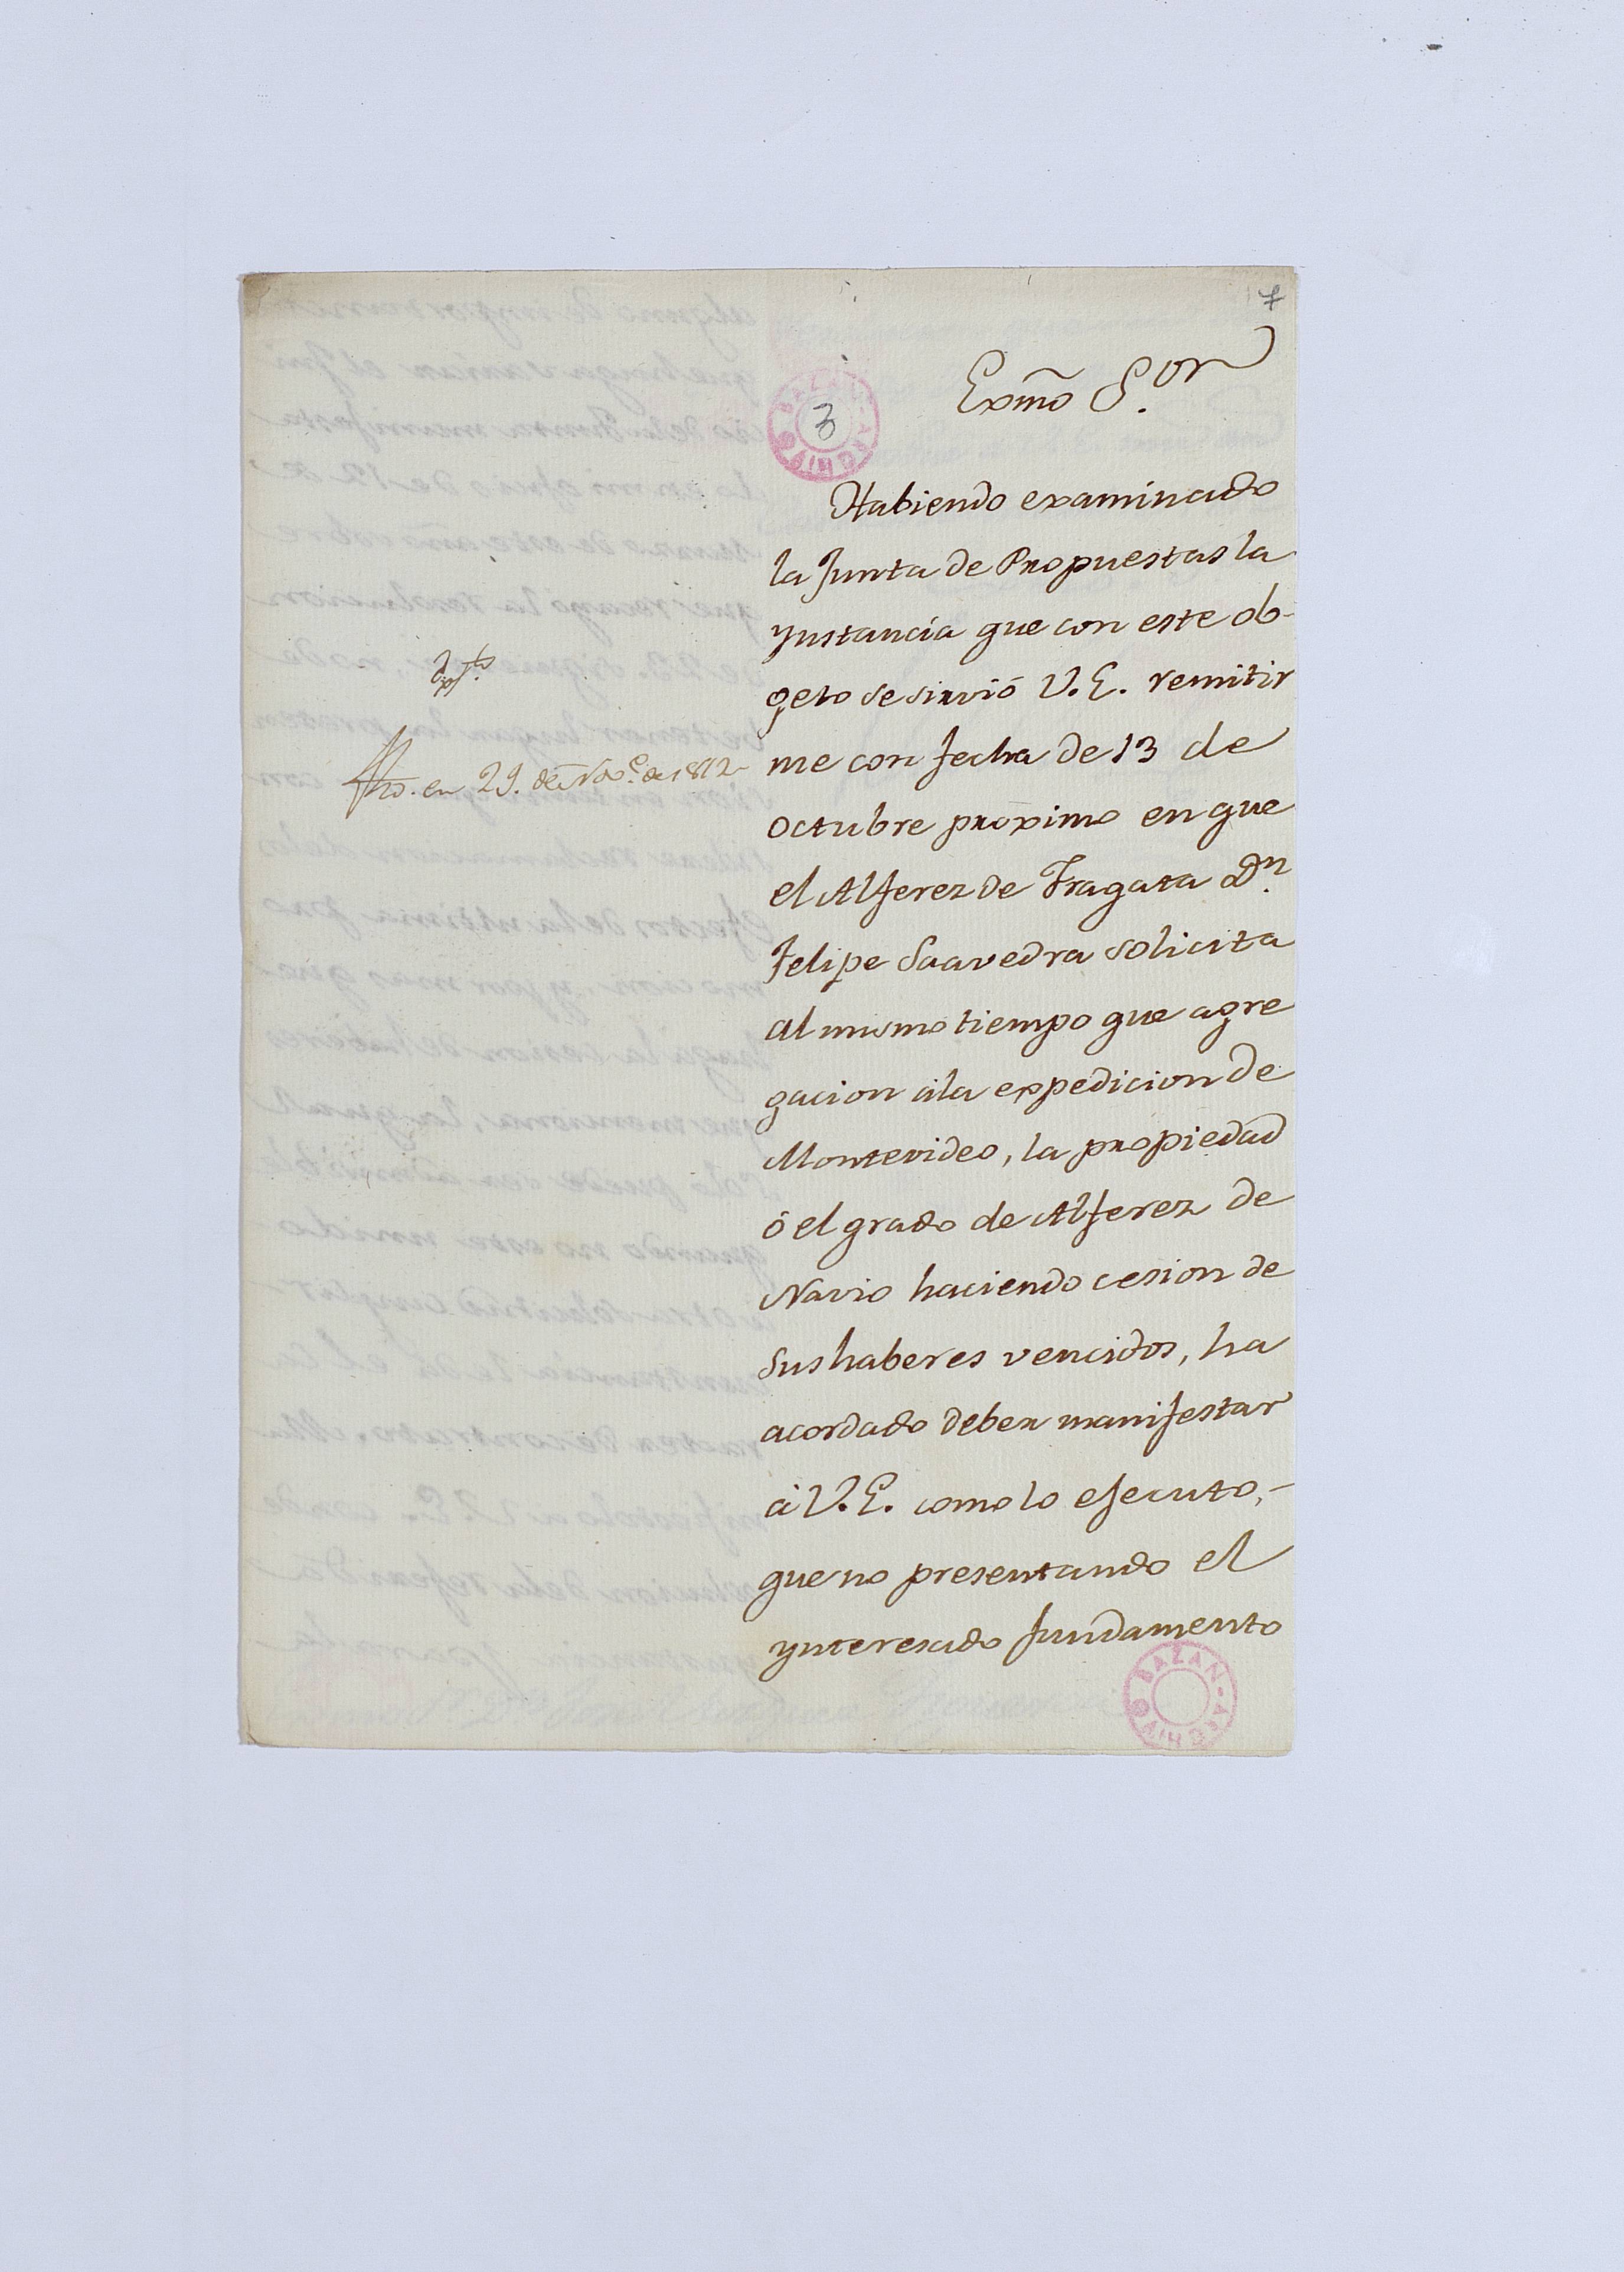 7
Exmo S.or
BAZAN - ARCHIVO
3
Habiendo examinado
la Junta de Propuestas la
ynstancia que con este ob-
geto se sirvió V.E. remitir
me con fecha de 13 de
Octubre proximo en que
el Alferez de Fragata Dn.
Felipe Saavedra solicita
al mismo tiempo que agre
gacion á la expedicion de
Montevideo, la propiedad
ó el grado de Alferez de
Navio haciendo cesion de
sus haberes vencidos, ha
acordado deber manifestar
á V.E. como lo ejecuto,-
que no presentando el
ynteresado fundamento
BAZAN - ARCHIVO
fho. en 29. de Nov.e de 1812